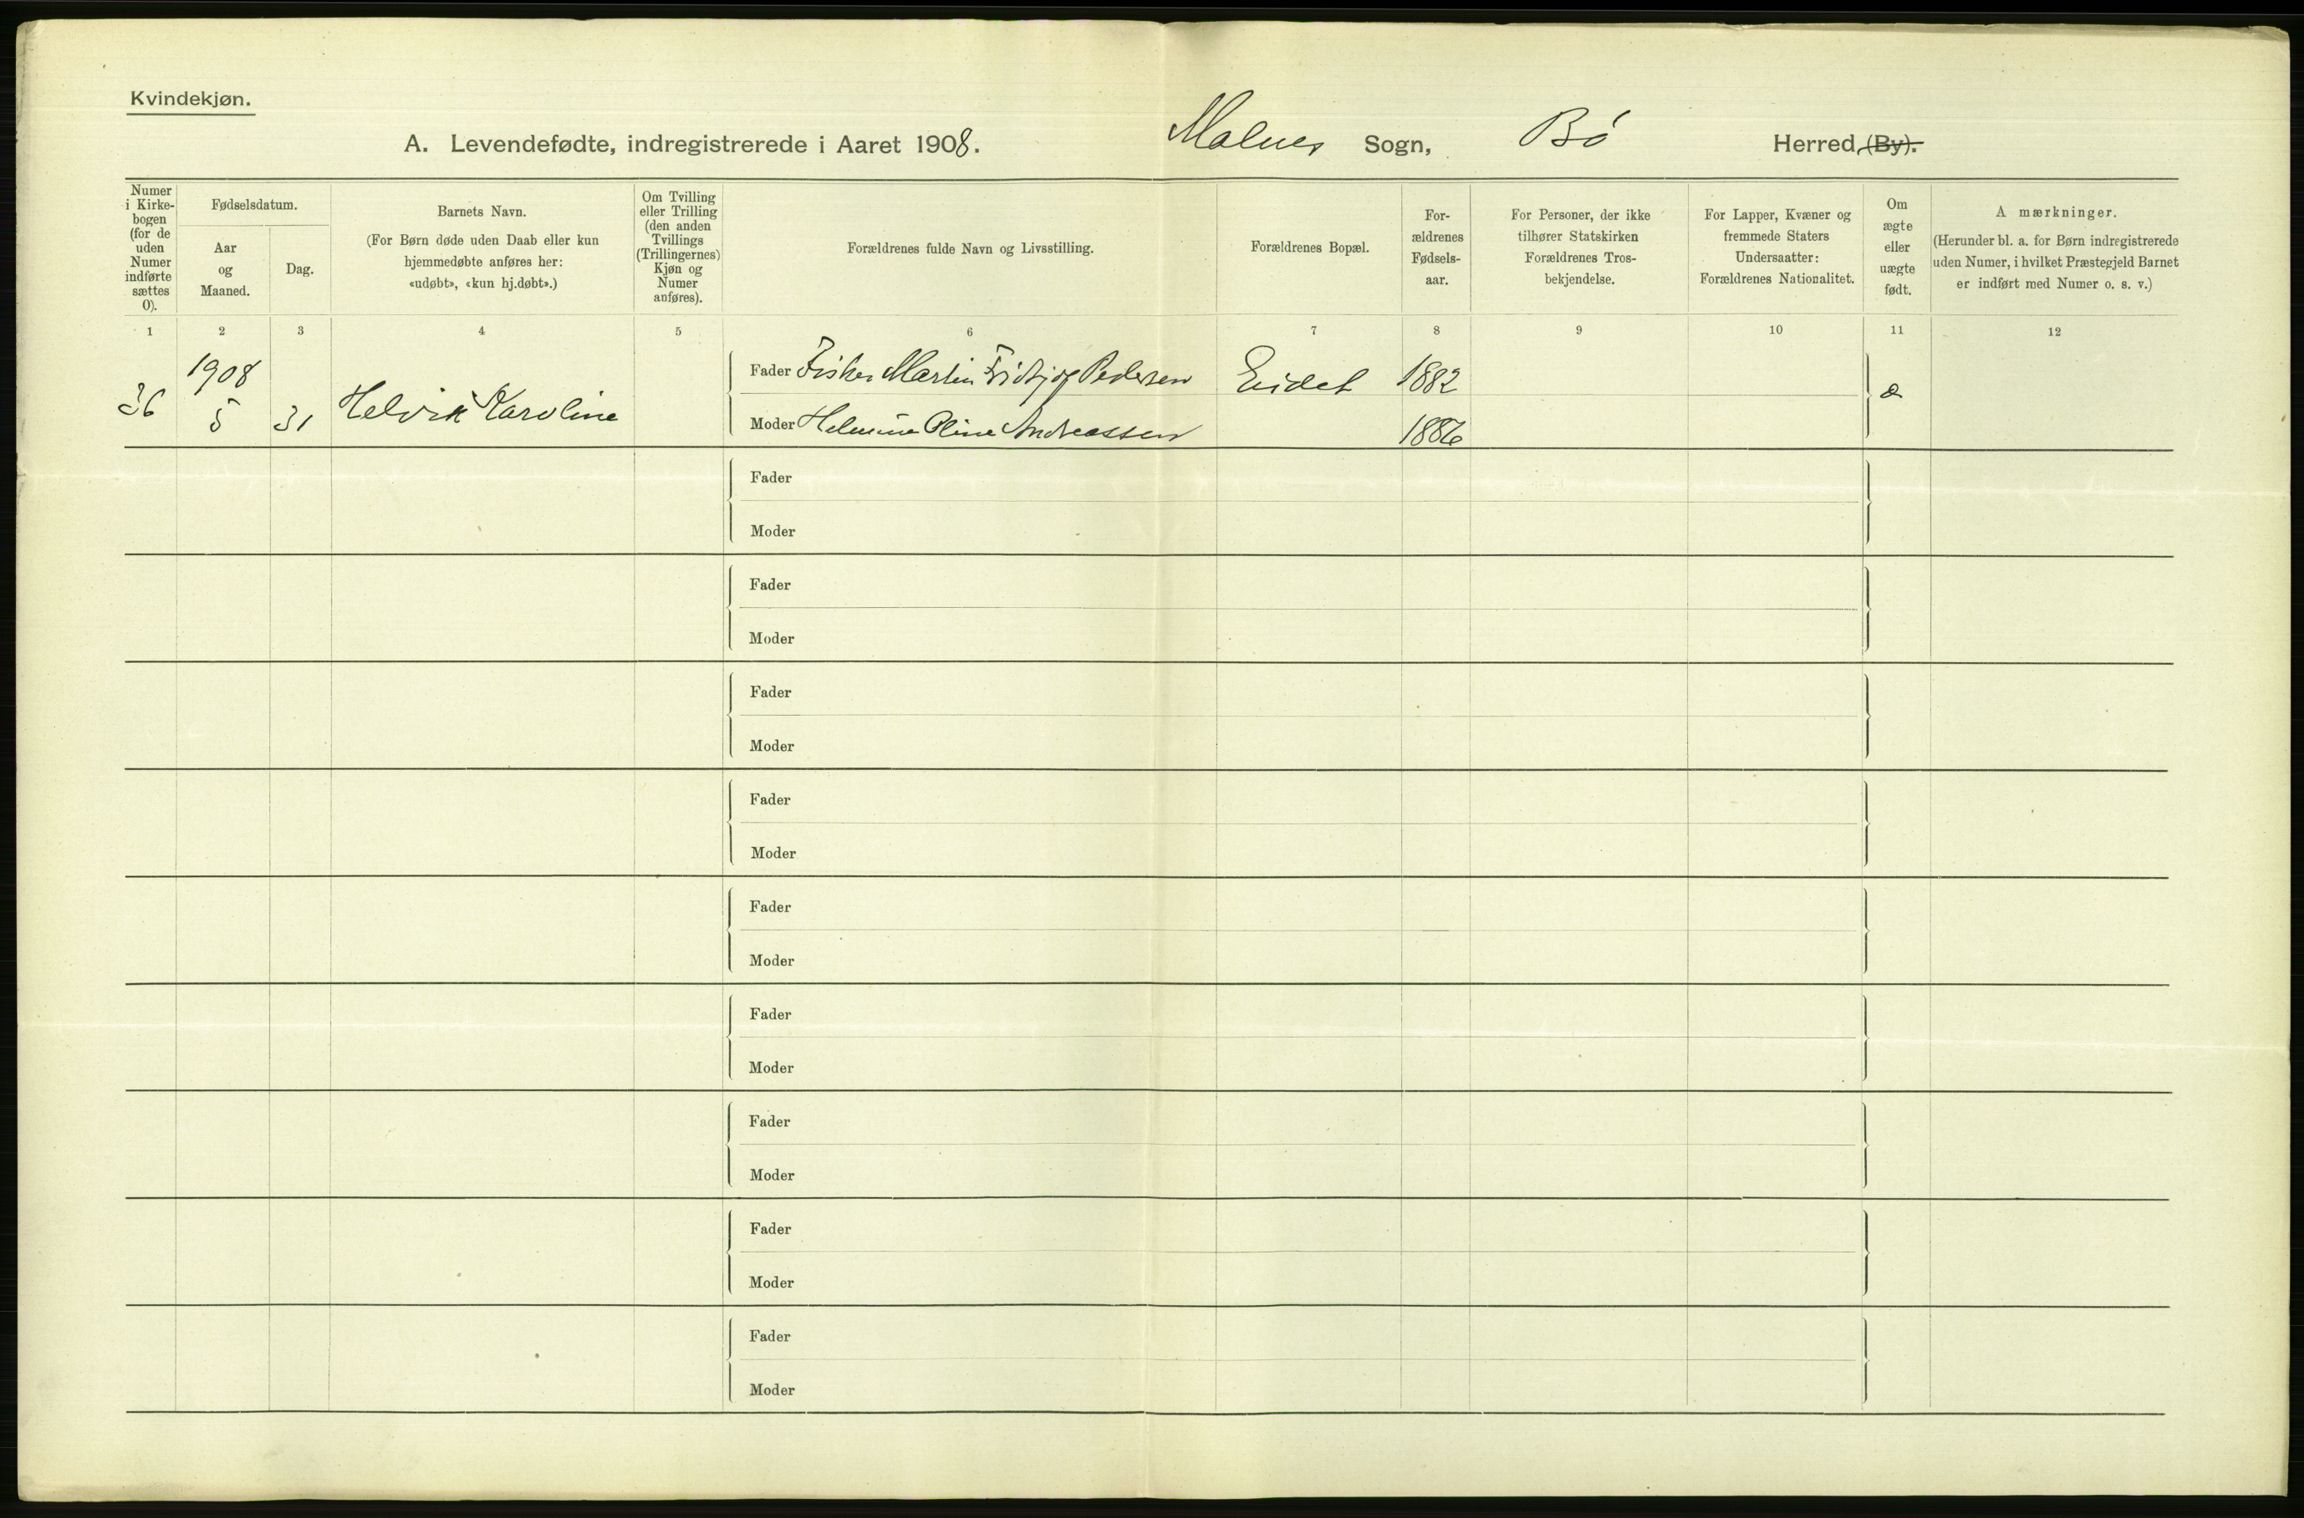 Kvindekjøn.
A. Levendefødte, indregistrerede i Aaret 1908. Malnes Sogn, Bø Herred (By).
Numer i Kirke-bogen (for de uden Numer indførte sættes 0).
Fødselsdatum.
Aar og Maaned.
Dag.
Barnets Navn.
(For Børn døde uden Daab eller kun
hjemmedøbte anføres her:
«udøbt», «kun hj.døbt».)
Om Tvilling
eller Trilling
(den anden
Tvillings
(Trillingernes)
Kjøn og
Numer
anføres).
Forældrenes fulde Navn og Livsstilling.
Forældrenes Bopæl.
For-
ældrenes
Fødsels-
aar.
For Personer, der ikke
tilhører Statskirken
Forældrenes Tros-
bekjendelse.
For Lapper, Kvæner og
fremmede Staters
Undersaatter:
Forældrenes Nationalitet.
Om
ægte
eller
uægte
født.
A mærkninger.
(Herunder bl. a. for Børn indregistrerede
uden Numer, i hvilket Præstegjeld Barnet
er indført med Numer o. s. v.)
1 2 3 4 5 6 7 8 9 10 11 12
1908 Fader Fisker Martin Fridtjof Pedersen Eidet 1882
36 5 31 Helvik Karoline æ
Moder Helmine Oline Andreassen 1886
Fader
Moder
Fader
Moder
Fader
Moder
Fader
Moder
Fader
Moder
Fader
Moder
Fader
Moder
Fader
Moder
Fader
Moder